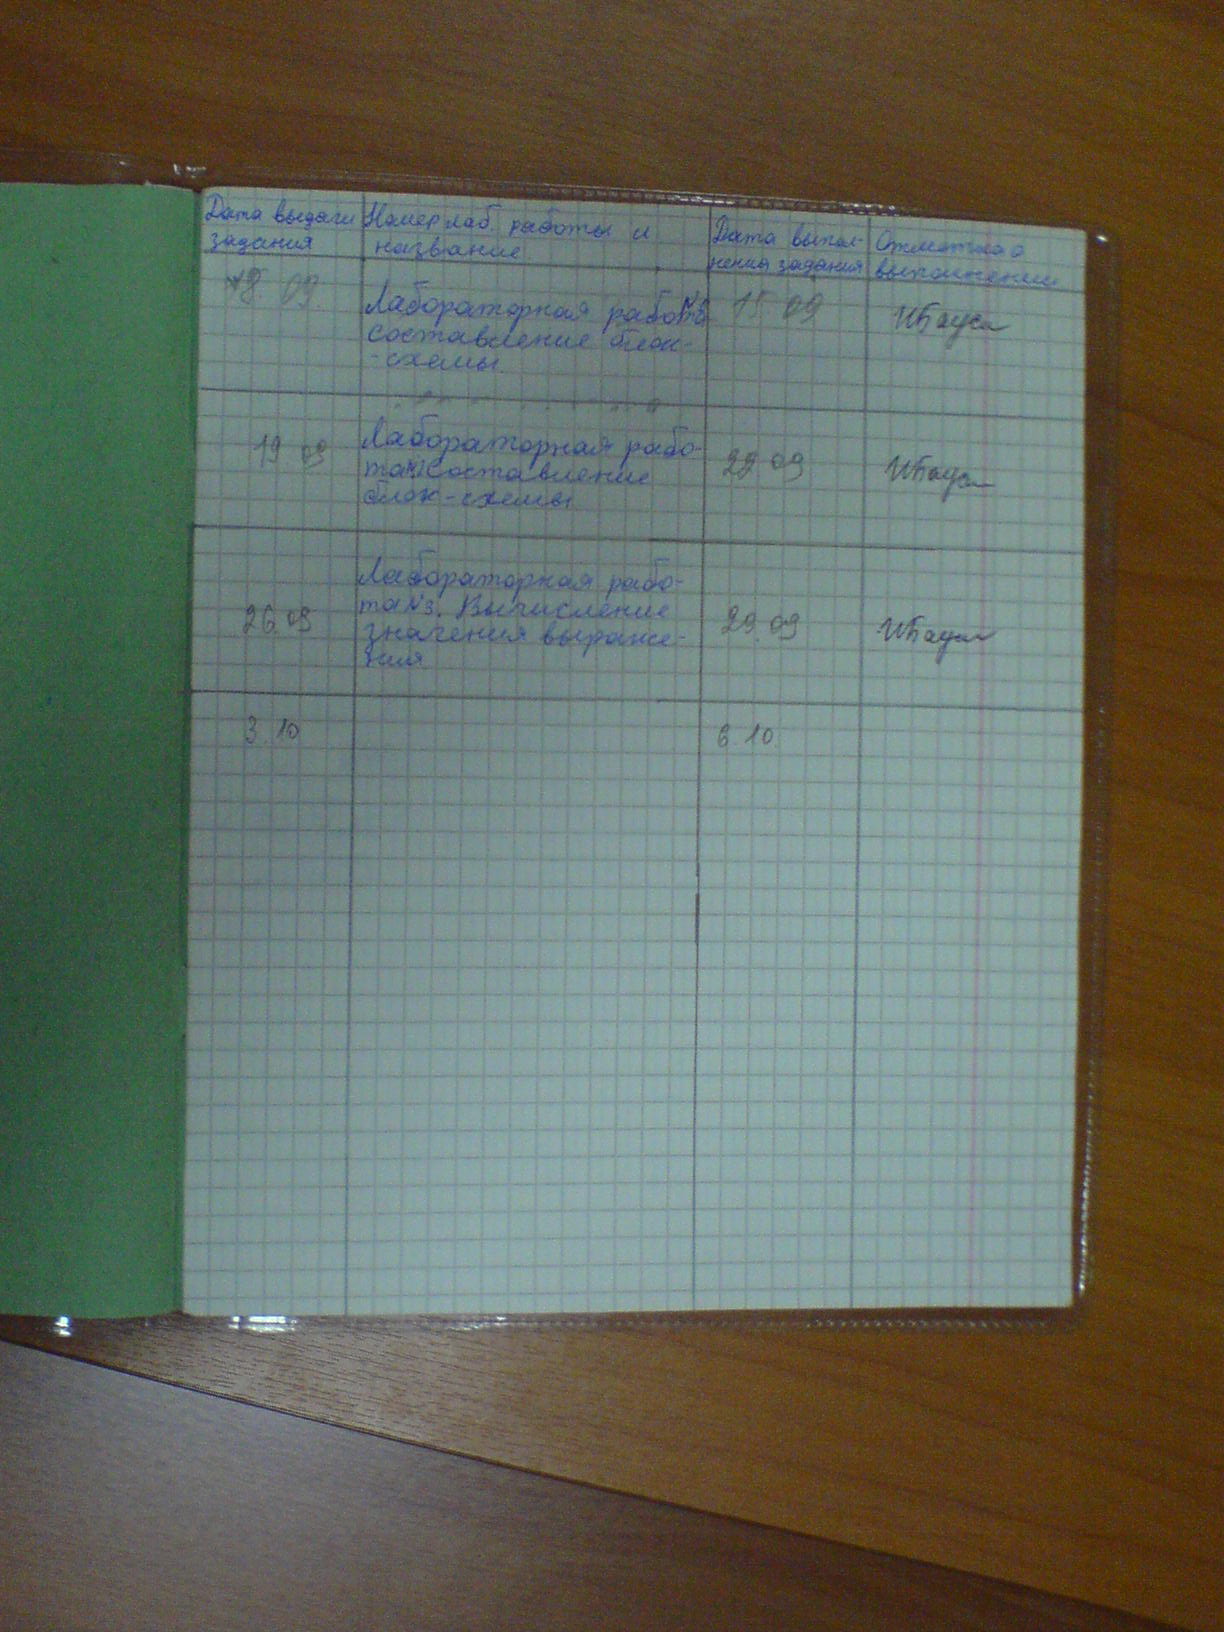 Дата выдачи
задания
Номер лаб. работы и
название
Дата выпол-
нения задания
Отметка о
выполнении
09
Лабораторная работа
составление блок-
-схемы.
15 09
19 09
Лабораторная рабо-
та составление
блок-схемы
22 09
26.09
Лабораторная рабо-
та №3. Вычисление
значения выраже-
ния
29.09
3.10
6.10.